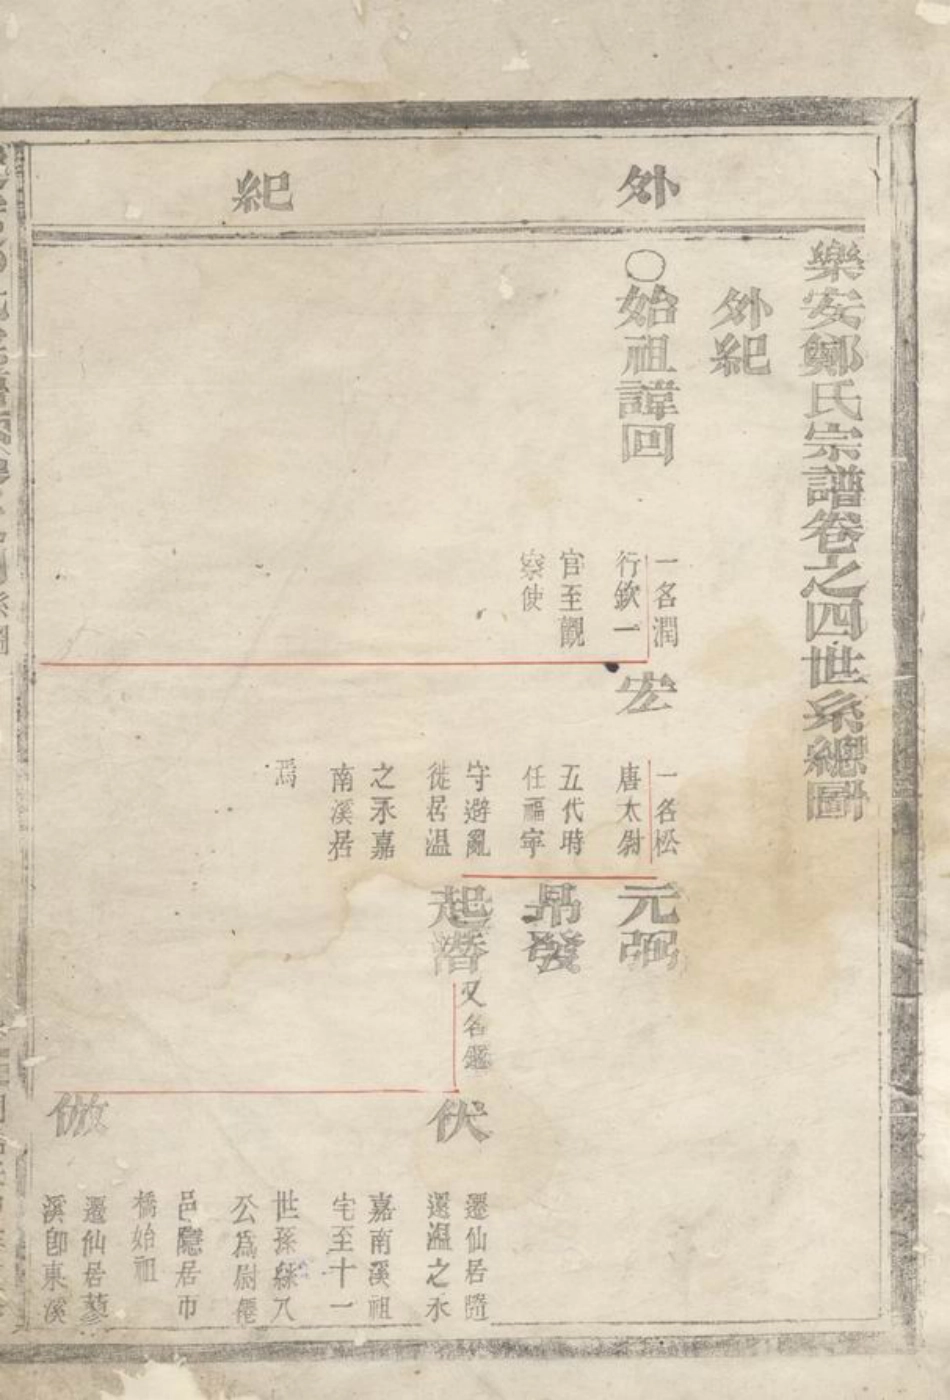 外紀
樂安鄭氏宗譜卷之四世系總圖
外紀
〇始祖諱回
一名潤
行欽一
官至觀
察使
宏
一名松
唐太尉
五代時
任福寧
守避亂
徙居温
之永嘉
南溪居
焉
元弼
昂發
起潛
又名鑑
伏
遷仙居隨
還溫之永
嘉南溪祖
宅至十一
世孫綵八
公爲尉僊
邑隱居市
橋始祖
倣
遷仙居蓼
溪卽東溪